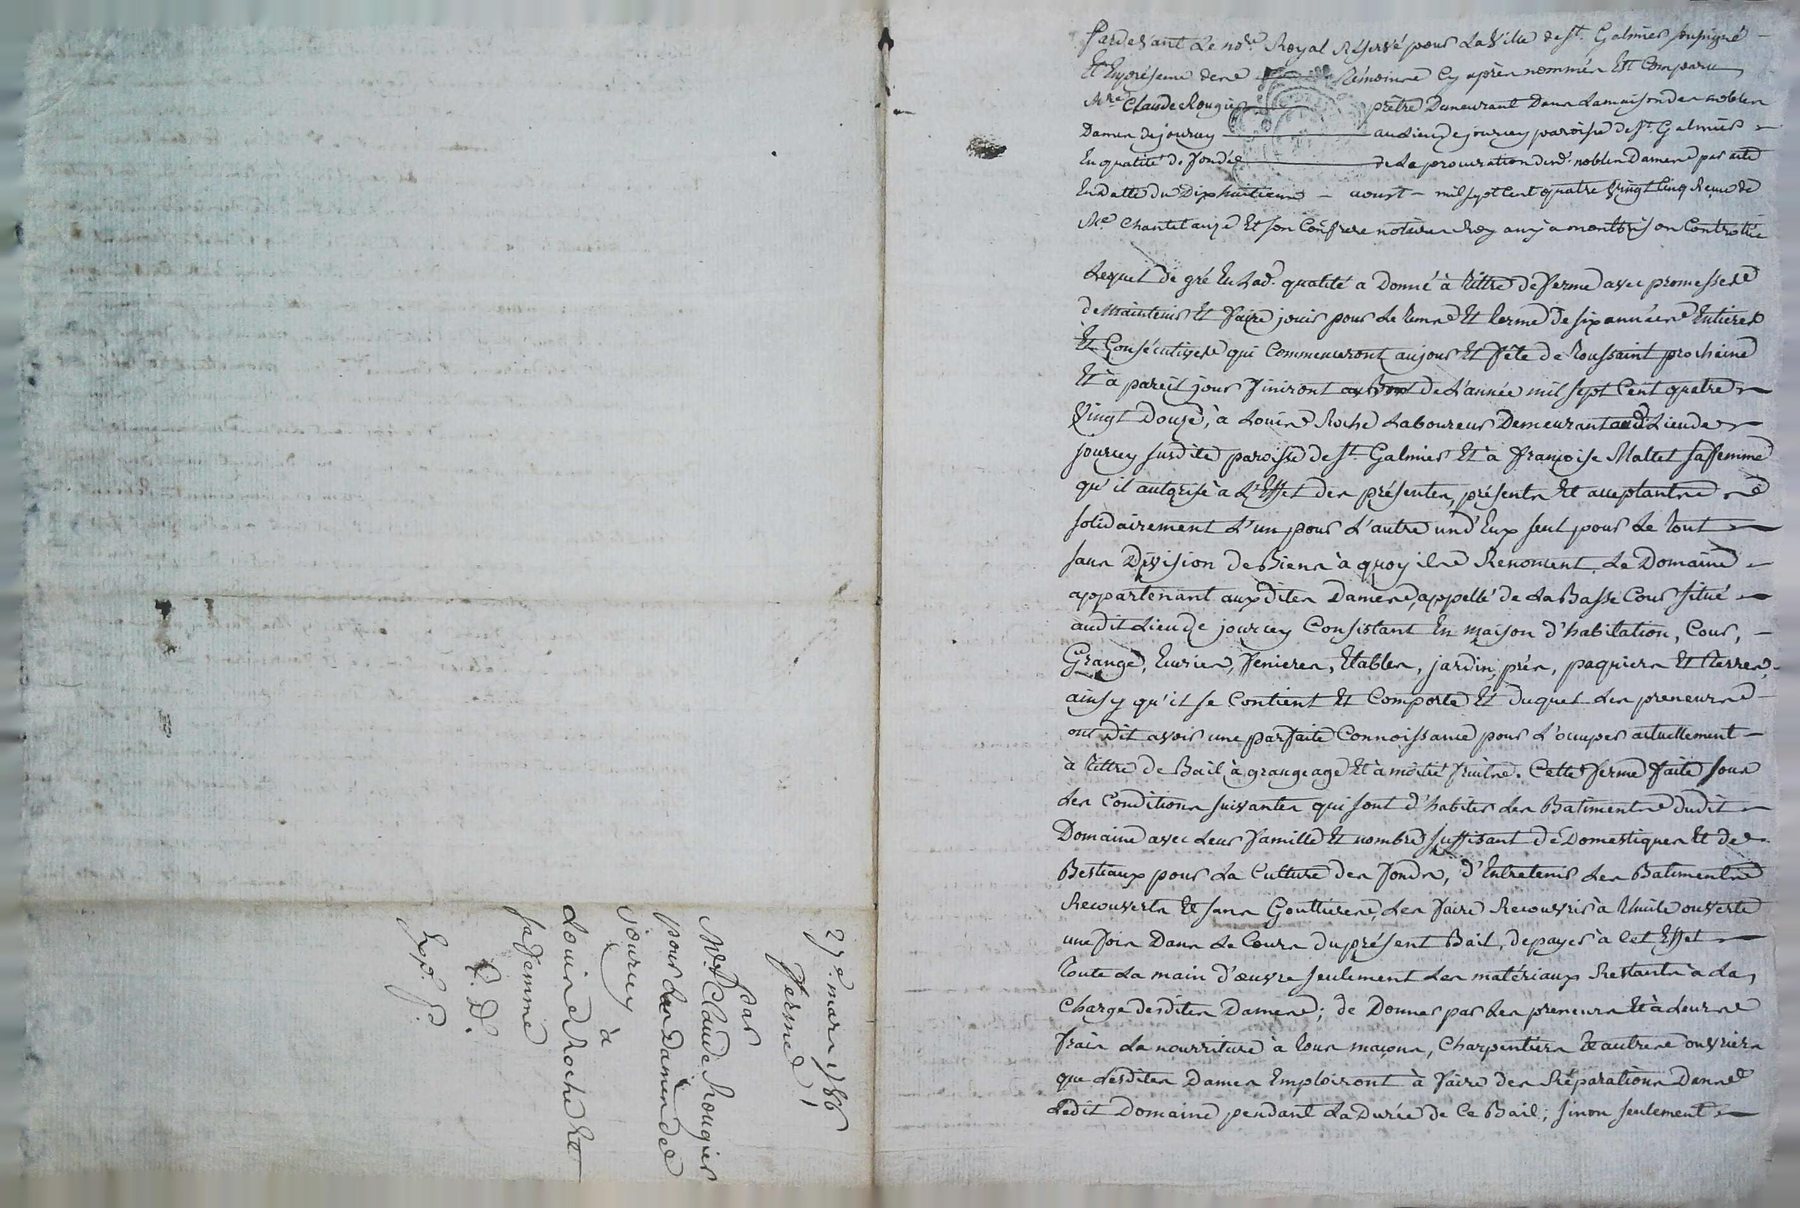 Pardevant le no.re Royal Réservé pour la Ville de St. Galmier soussigné
Et En présence des témoins cy après nommés Est comparu
Mre. Claude Rougier prêtre Demeurant Dans la maison des nobles
Dames de jourcey au Lieu de jourcey paroisse de St. Galmier
En qualité de fondé de la procuration desd. nobles Dames par acte
En datte du Dix huitieme aoust mil sept Cent quatre Vingt Cinq Reçue de
Me. Chantelauze Et son Confrere notaires Royaux à montbrison Controllée
Lequel de gré En lad. qualité a Donné à tittre de ferme avec promesse de
de maintenir Et faire jouir pour le tems Et terme de six années Entieres
Et Consécutives qui Commenceront au jour Et fête de toussaint prochaine
Et à pareil jour finiront de L'année mil sept Cent quatre
Vingt Douze, à Louis Roche Laboureur Demeurant aud. Lieu de
jourcey susdite paroisse de St. Galmier Et à françoise Mallet sa femme
qu'il autorise à L'Effet des présentes, présents Et acceptants
solidairement L'un pour L'autre un d'Eux seul pour le tout
sans Division de Biens à quoy ils Renoncent, Le Domaine
appartenant auxdites Dames, appellé de la Basse Cour situé
audit Lieu de jourcey Consistant En maison d'habitation, Cour,
Grange, Ecuries, fenieres, Etables, jardin, prés, paquiers Et terres,
ainsy qu'il se Contient Et Comporte Et duquel les preneurs
ont dit avoir une parfaite Connoissance pour L'occuper actuellement
à tittre de Bail à grangeage Et à moitié fruits. Cette ferme faite sous
les Conditions suivantes qui sont d'habiter les Batiments dudit
Domaine avec leur famille Et nombre suffisant de Domestiques Et de
Bestiaux pour la Culture des fonds, d'Entretenir les Batiments
Recouverts Et sans Gouttieres, les faire Recouvrir à tuile ouverte
une fois Dans le Cours du présent Bail, de payer à Cet Effet
toute la main d'œuvre seulement les matériaux Restants à la
Charge desdites Dames; de Donner par les preneurs Et à Leurs
frais la nourriture à tous maçons, Charpentiers Et autres ouvriers
que lesdites Dames Emploiront à faire des Réparations Dans
ledit Domaine pendant la Durée de Ce Bail; sinon seulement
27e. mars 1786
ferme
Par
Mre. Claude Rougier
pour les Dames de
jourcey
à
Louis Roche Et
sa femme
C. D.
Exp. f.